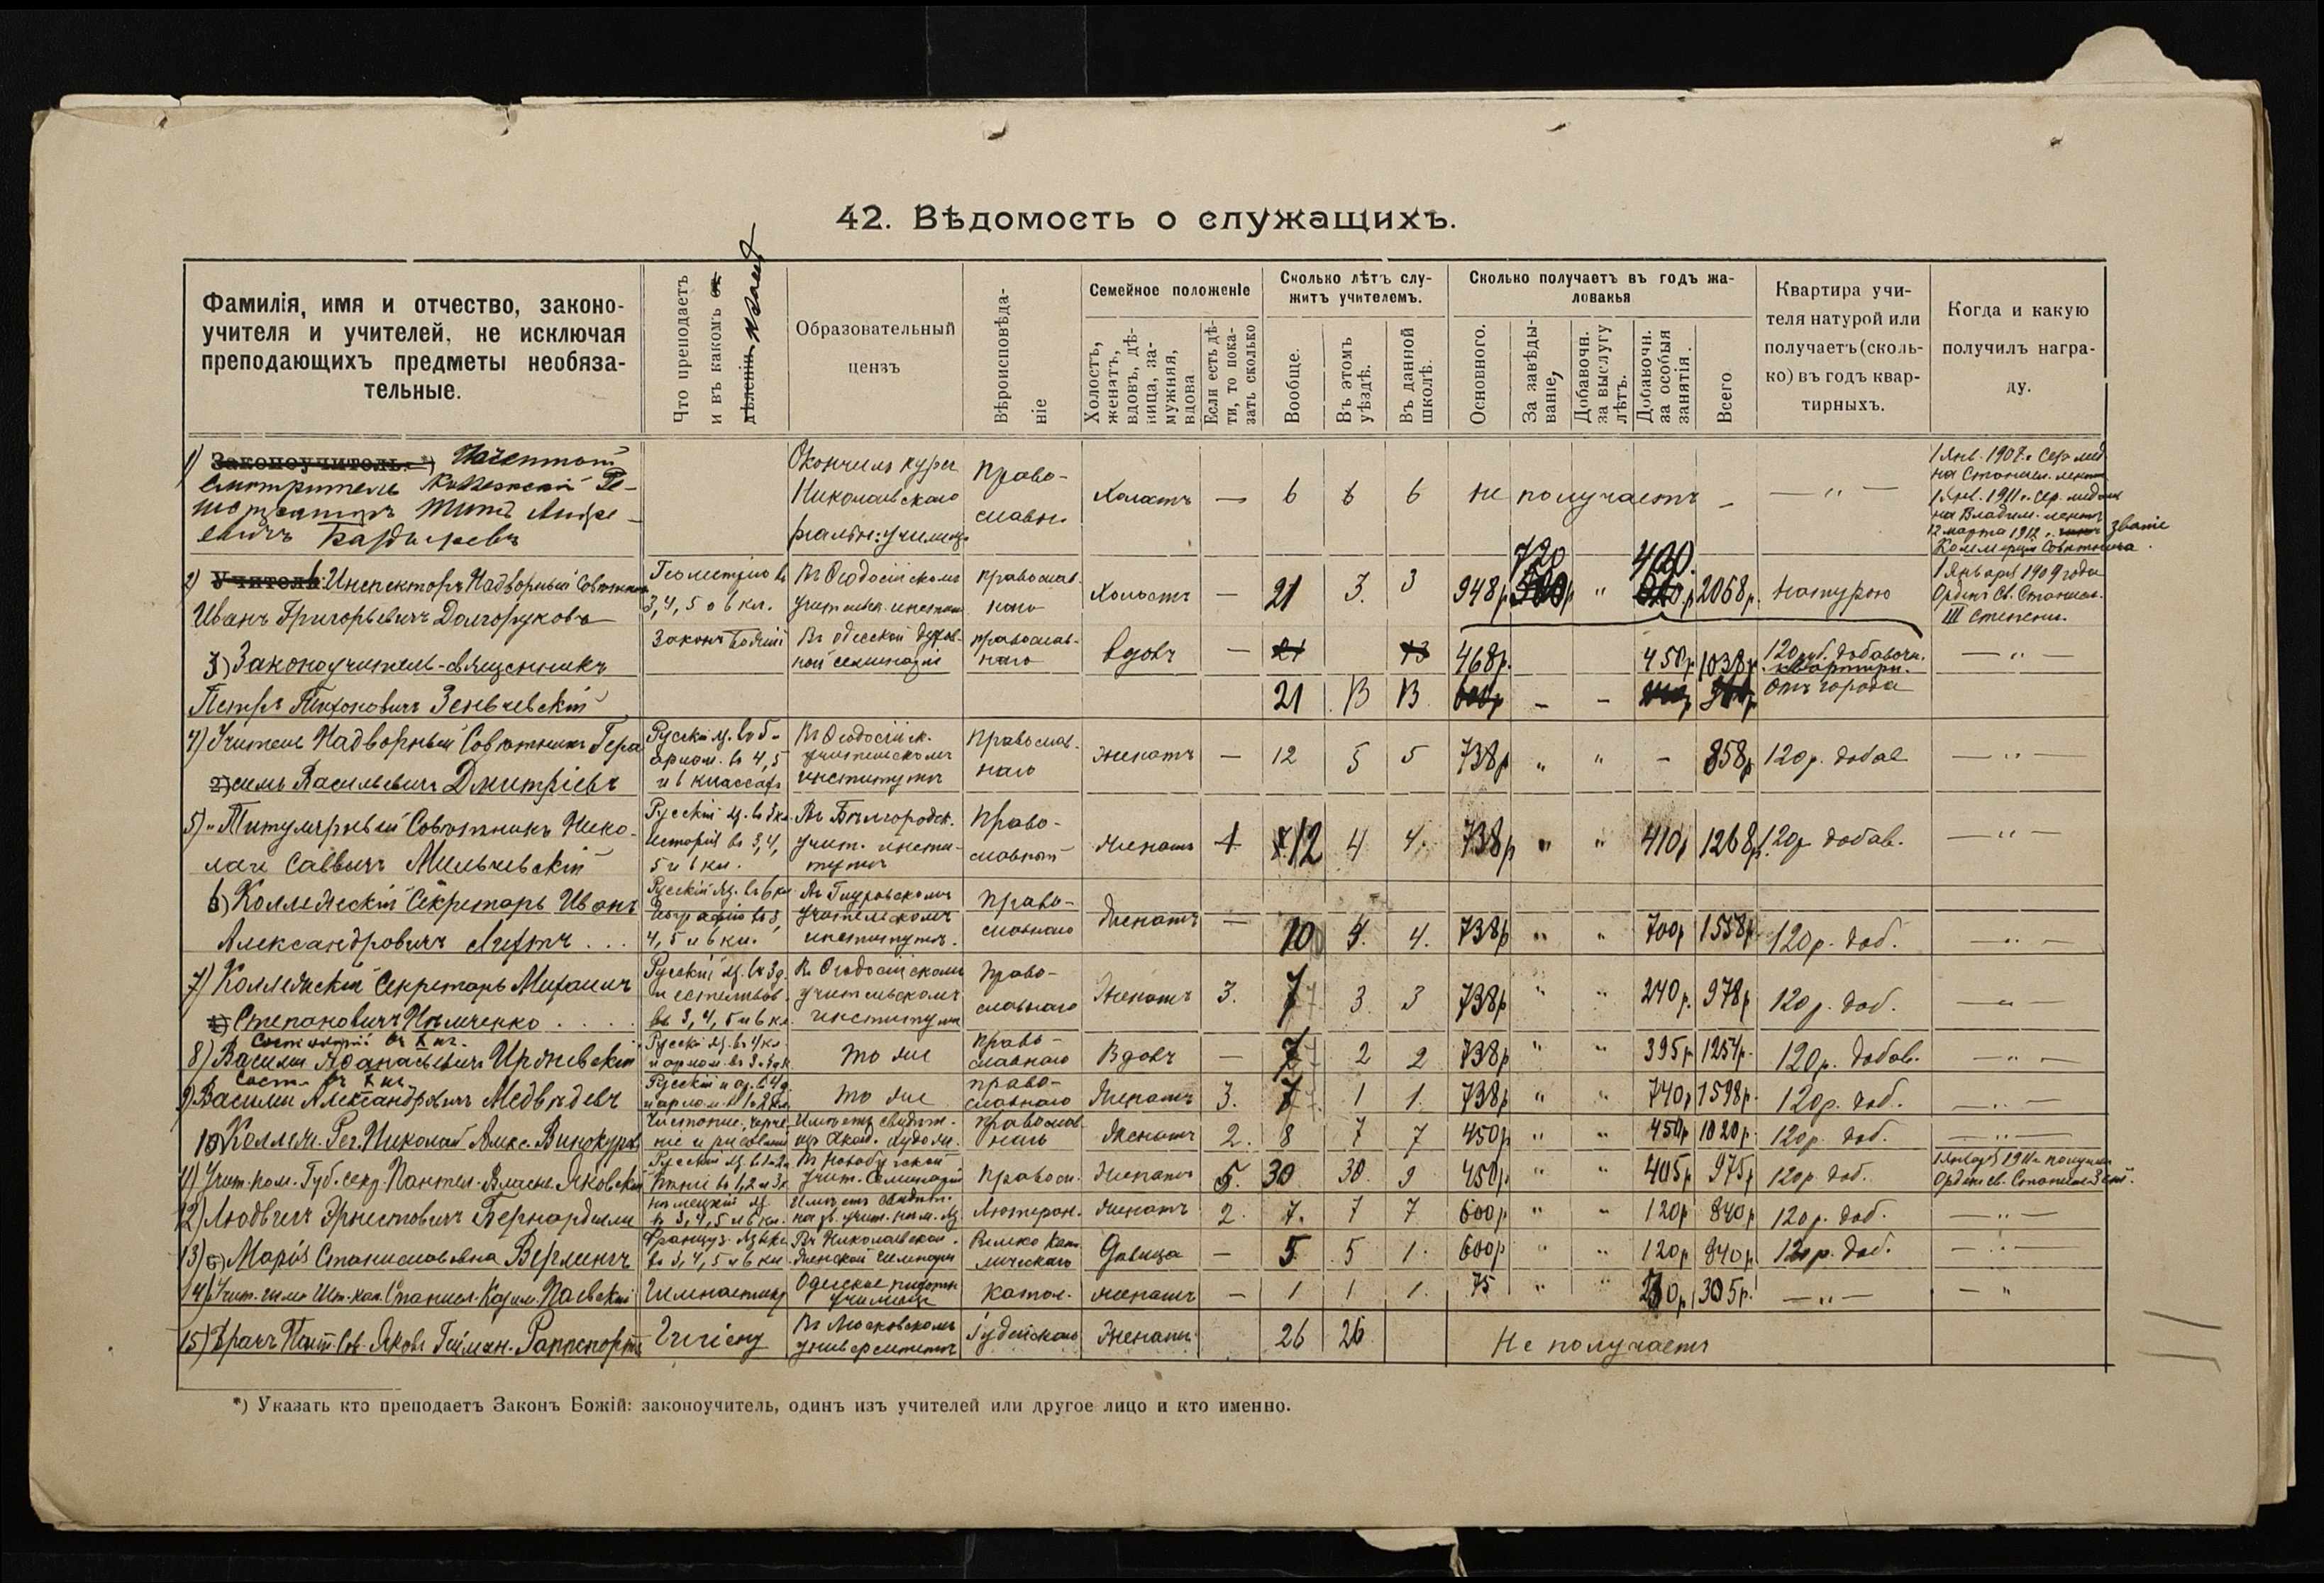 42. Вѣдомость о служащихъ.
Фамилія, имя и отчество, законо-
учителя и учителей, не исключая
преподающихъ предметы необяза-
тельные.
Что преподаетъ
и въ какомъ
дѣленіи
Образовательный
цензъ
Вѣроисповѣда-
ніе
Семейное положеніе
Холостъ,
женатъ,
вдовъ, дѣ-
вица, за-
мужняя,
вдова
Если есть дѣ-
ти, то пока-
зать сколько
Сколько лѣтъ слу-
житъ учителемъ.
Вообще.
Въ этомъ
уѣздѣ.
Въ данной
школѣ.
Сколько получаетъ въ годъ жа-
лованья
Основного.
За завѣды-
ваніе,
Добавочн.
за выслугу
лѣтъ.
Добавочн.
за особыя
занятія.
Всего
Квартира учи-
теля натурой или
получаетъ (сколь-
ко) въ годъ квар-
тирныхъ.
Когда и какую
получилъ награ-
ду.
1) Законоучитель. *) Почетный
Смотритель
Титъ Андре-
евичъ
Окончилъ курсъ
Николаевскаго
реальн. училища
Право-
славн.
Холостъ — 6 6 6 не получаетъ — — „ —
1 Янв. 1907 г. Сер. мед.
на Станисл. лентѣ
1 Янв. 1911 г. Сер. медаль
на Владим. лентѣ
12 марта 1912 г. званіе
Коммерціи Совѣтника.
2) Учитель Инспекторъ Надворный Совѣтникъ
Иванъ Григорьевичъ Долгоруковъ
Геометрію въ
3, 4, 5 и 6 кл.
Въ Ѳеодосійскомъ
учительск. инстит.
православ-
наго
Холостъ — 21 3. 3 948 р. 720 „ 400 2068 р. натурою
1 Января 1909 года
Орденъ Св. Станисл.
III степени.
3) Законоучитель-священникъ
Петръ Тихоновичъ Зеньчевскій
Законъ Божій
Въ одесской духов-
ной семинаріи
православ-
наго
вдовъ — 21 13 468 р. 450 р. 1038 р.
120 руб. добавочн.
квартирн.
Отъ города
— „ —
21 13 13 — —
4) Учитель Надворный Совѣтникъ Гера
симъ Васильевичъ Дмитріевъ
Русскій яз. въ 5 и
ариѳм. въ 4, 5
и 6 классахъ
Въ Ѳеодосійск.
учительскомъ
институтѣ
Православ-
наго
женатъ — 12 5 5 738 р. „ „ — 858 р. 120 р. добав — „ —
5) „ Титулярный Совѣтникъ Нико-
лай Саввичъ Мильчевскій
Русскій яз. въ 3 кл.
Исторія въ 3, 4,
5 и 6 кл.
Въ Бѣлгородск.
учит. инсти-
тутѣ
Право-
славный
Женатъ 1 12 4 4. 738 р „ „ 410 р 1268 р. 120 р добав. — „ —
6) Коллежскій Секретарь Иванъ
Александровичъ
Русскій яз. въ 6 кл
Географію въ 3,
4, 5 и 6 кл.
Въ Глуховскомъ
учительскомъ
институтѣ.
Право-
славнаго
Женатъ — 10 4. 4. 738 р „ „ 700 р 1558 р 120 р. доб. — „ —
7) Коллежскій Секретарь Михаилъ
Степановичъ Ильченко . . . .
Русскій яз. въ 3 д.
и естествов.
въ 3, 4, 5 и 6 кл.
Въ Ѳеодосійскомъ
учительскомъ
институтѣ
Право-
славнаго
Женатъ 3. 7 3 3 738 р „ „ 240 р. 978 р 120 р. доб. — „ —
Состоящій въ X кл.
8) Василій Аѳанасьевичъ Иржевскій
Русскій яз. въ 4 кл
то же
Право-
славнаго
Вдовъ — 7 2 2 738 р „ „ 395 р 1254 р. 120 р. добав. — „ —
Сост. въ X кл.
9) Василій Александровичъ Медвѣдевъ
то же
право-
славнаго
Женатъ 3. 7 1 1. 738 р „ „ 740 р 1598 р. 120 р. доб. — „ —
10) Коллеж. Рег. Николай Алекс. Винокуровъ
Чистопис., черче-
ніе и рисованіе
Имѣетъ свидѣт.
изъ Акад. худож.
православ-
наго
Женатъ 2. 8 7 7 450 р „ „ 450 р 1020 р. 120 р. доб. — „ —
11) Учит. пом. Губ. секр. Пантел. Власье. Яковскій
Учит. Семинаріи
Правосл.
Женатъ 5. 30. 30. 9 450 р „ „ 405 р 975 р 120 р. доб.
1 Января 1911 г. получилъ
Орденъ св. Станисл. 3 ст.
12) Людвигъ Эрнестовичъ Бернардели
нѣмецкій яз.
въ 3, 4, 5 и 6 кл.
Имѣетъ свидѣт.
на зв. учит. нѣм. яз.
Лютеран.
женатъ 2. 7. 7 7 600 р „ „ 120 р 840 р 120 р. доб. — „ —
13) Марія Станиславовна Верлингъ
Француз. языкъ
въ 3, 4, 5 и 6 кл.
Въ Николаевской
женской гимназіи
Римско Като-
лическаго
Дѣвица — 5 5 1. 600 р „ „ 120 р 840 р. 120 р. доб. — „ —
14) Учит. гимн. Шт. кап. Станисл. Казим. Паевскій
Гимнастику
Одесское пѣхотн.
училище
Катол. женатъ — 1 1 1. 75 „ „ 230 р 305 р. — „ — — „
15) Врачъ Стат. Сов. Яковъ Гейман. Раппопортъ
Гигіену
Въ Московскомъ
университетѣ
Іудейскаго Женатъ 26 26 Не получаетъ
*) Указать кто преподаетъ Законъ Божій: законоучитель, одинъ изъ учителей или другое лицо и кто именно.